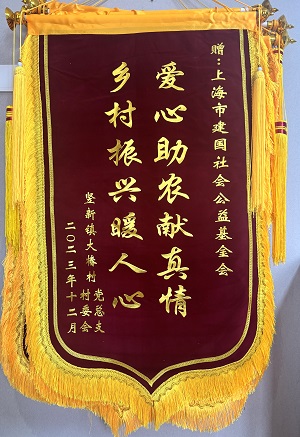 赠：上海市建国社会公益基金会
爱心助农献真情
乡村振兴暖人心
竖新镇大椿村
党总支
村委会
二〇二三年十二月